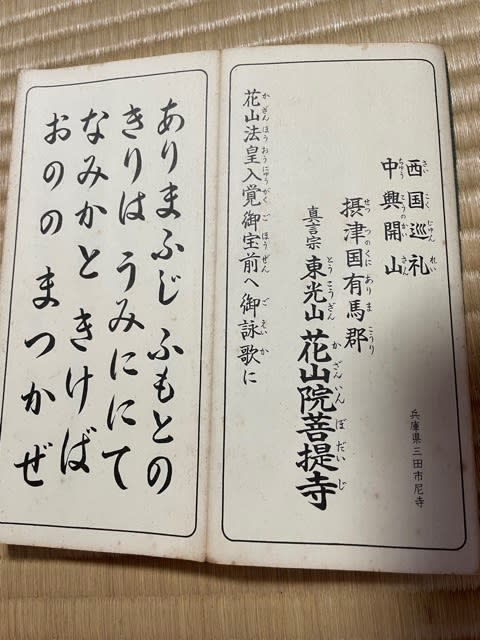 西国巡礼
中興開山
摂津国有馬郡
真言宗 東光山 花山院菩提寺
兵庫県三田市尼寺
花山法皇入覚御宝前へ御詠歌に
ありまふじ ふもとの
きりは うみににて
なみかと きけば
おのの まつかぜ